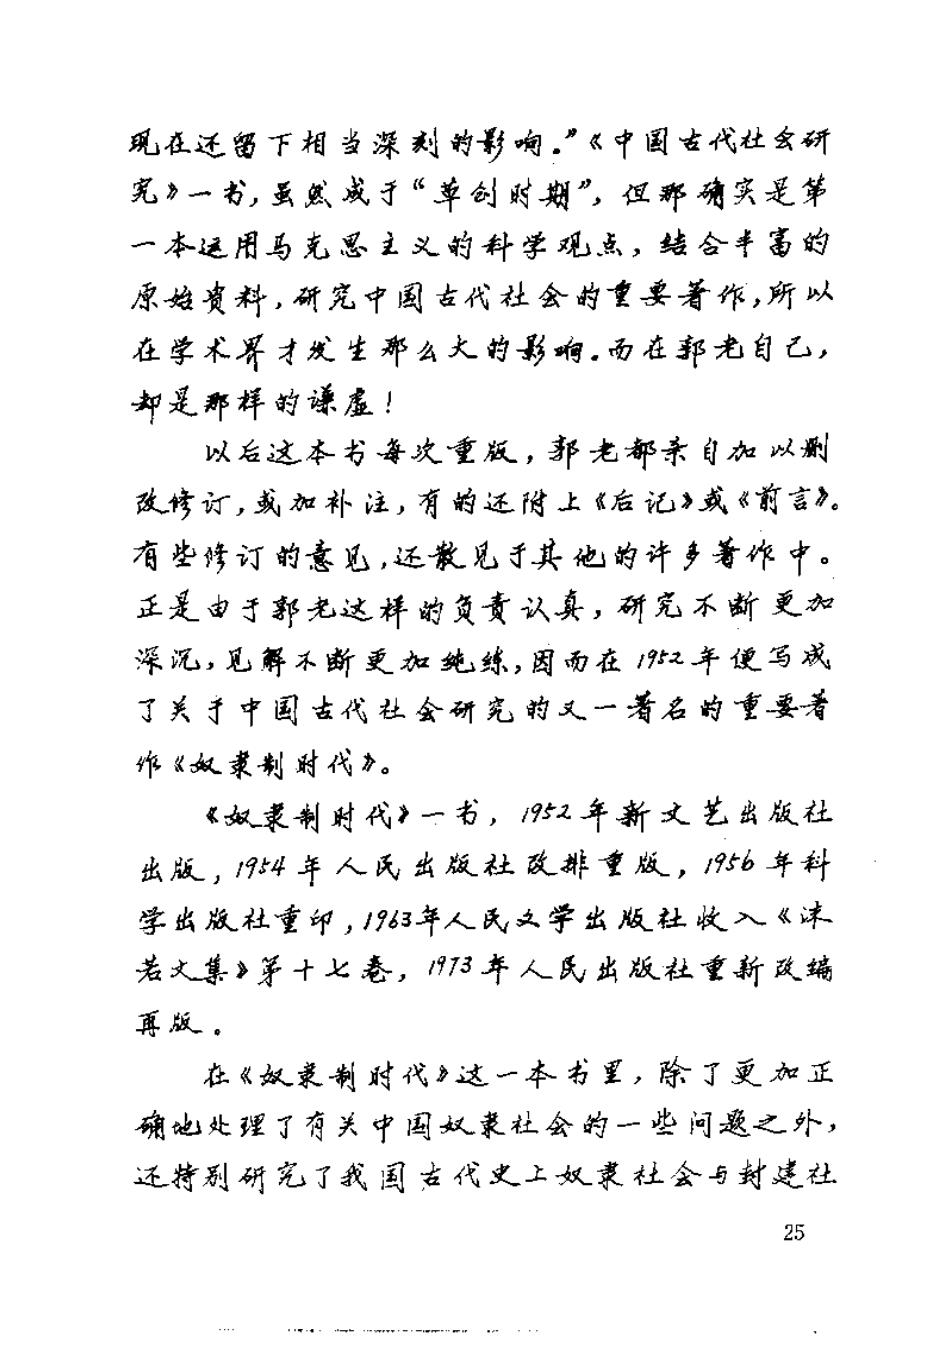 现在还留下相当深刻的影响。”《中国古代社会研
究》一书，虽然成于“草创时期”，但那确实是第
一本运用马克思主义的科学观点，结合丰富的
原始资料，研究中国古代社会的重要著作，所以
在学术界才发生那么大的影响。而在郭老自己，
却是那样的谦虚！
以后这本书每次重版，郭老都亲自加以删
改修订，或加补注，有的还附上《后记》或《前言》。
有些修订的意见，还散见于其他的许多著作中。
正是由于郭老这样的负责认真，研究不断更加
深沉，见解不断更加纯练，因而在1952年便写成
了关于中国古代社会研究的又一著名的重要著
作《奴隶制时代》。
《奴隶制时代》一书，1952年新文艺出版社
出版，1954年人民出版社改排重版，1956年科
学出版社重印，1963年人民文学出版社收入《沫
若文集》第十七卷，1973年人民出版社重新改编
再版。
在《奴隶制时代》这一本书里，除了更加正
确地处理了有关中国奴隶社会的一些问题之外，
还特别研究了我国古代史上奴隶社会与封建社
25